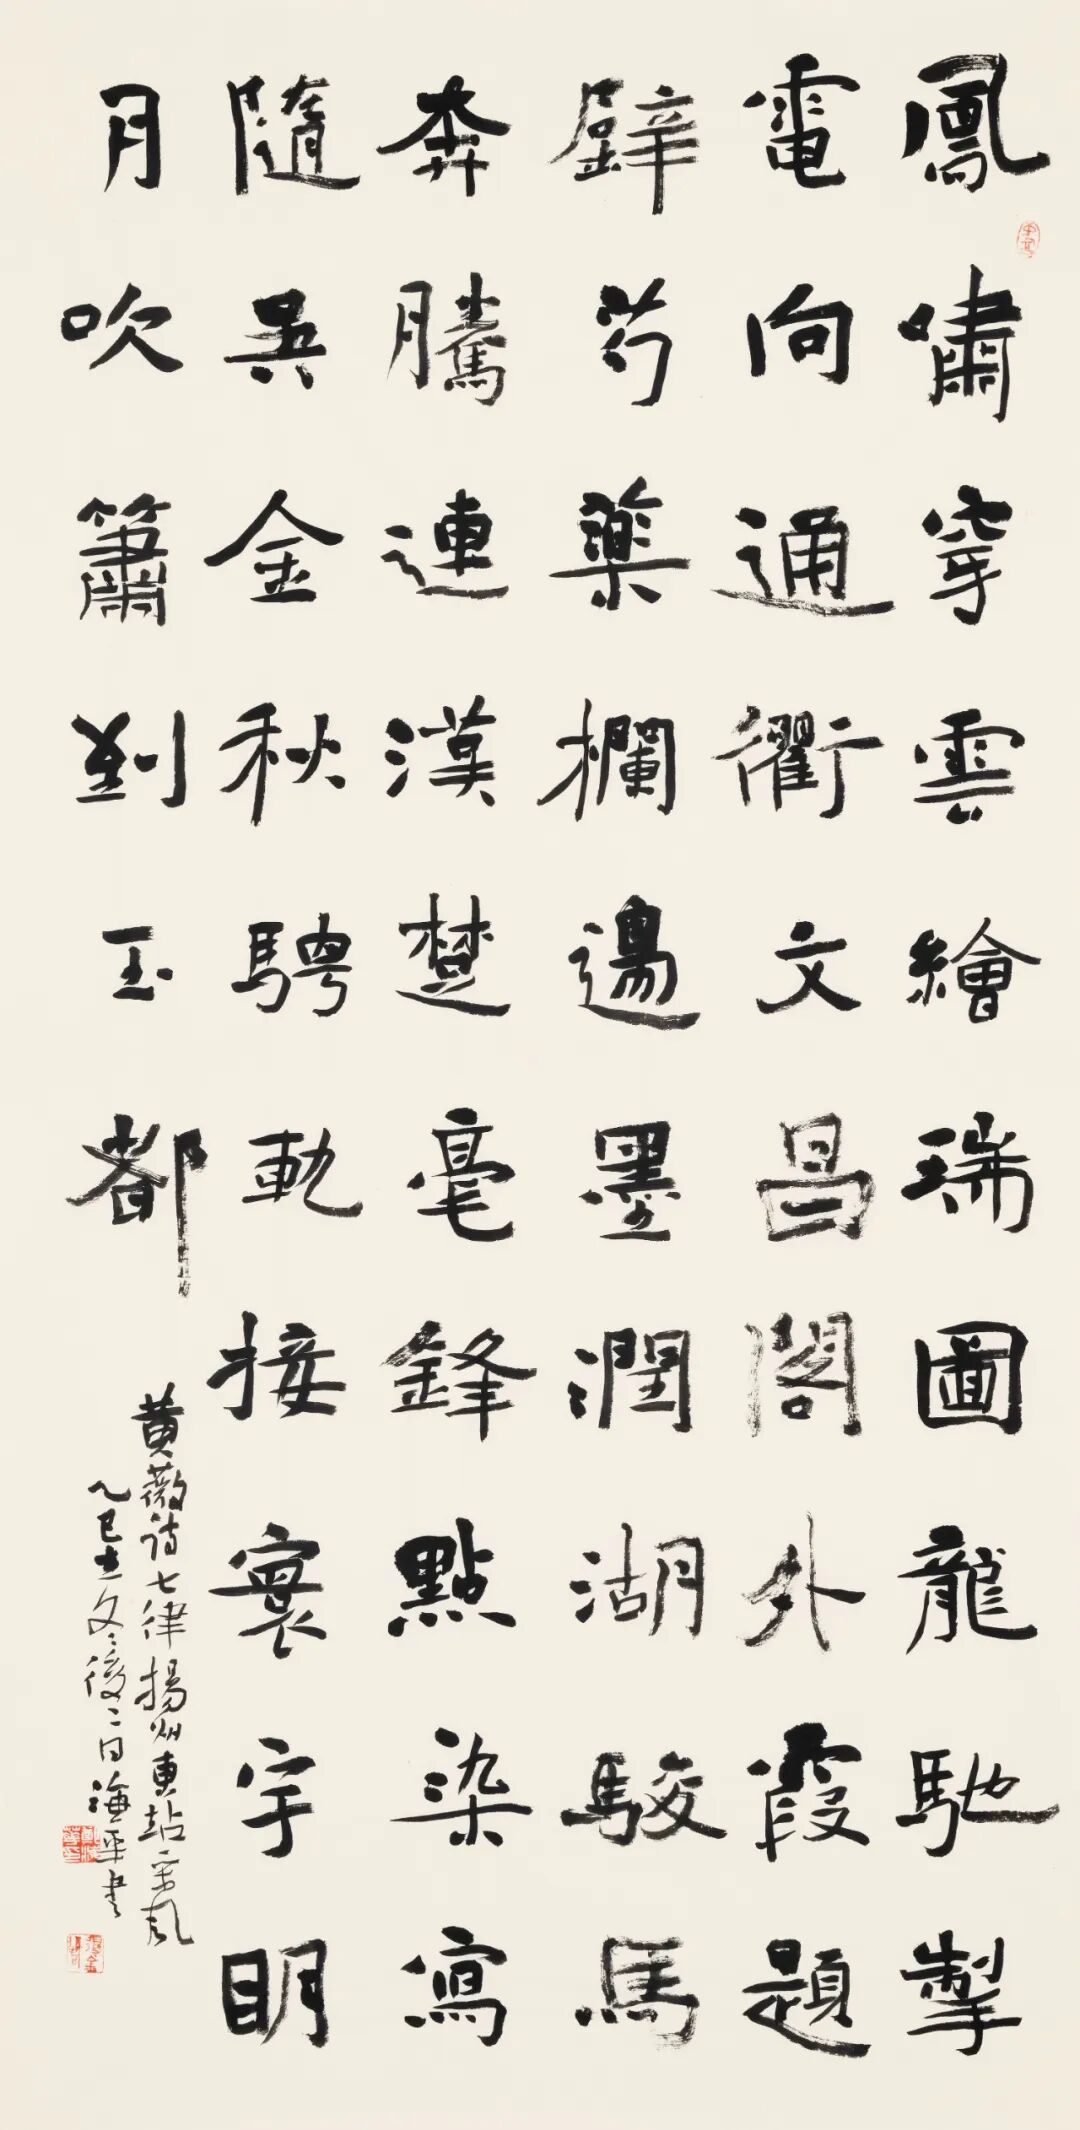 鳳嘯穿雲繪瑞圖龍馳掣
電向通衢文昌閣外霞題
壁芍藥欄邊墨潤湖駿馬
奔騰連漢楚毫鋒點染寫
隨吳金秋騁軌接寰宇明
月吹簫到玉都
黄薇詩七律揚州東站采風
乙巳立冬後二日海平書